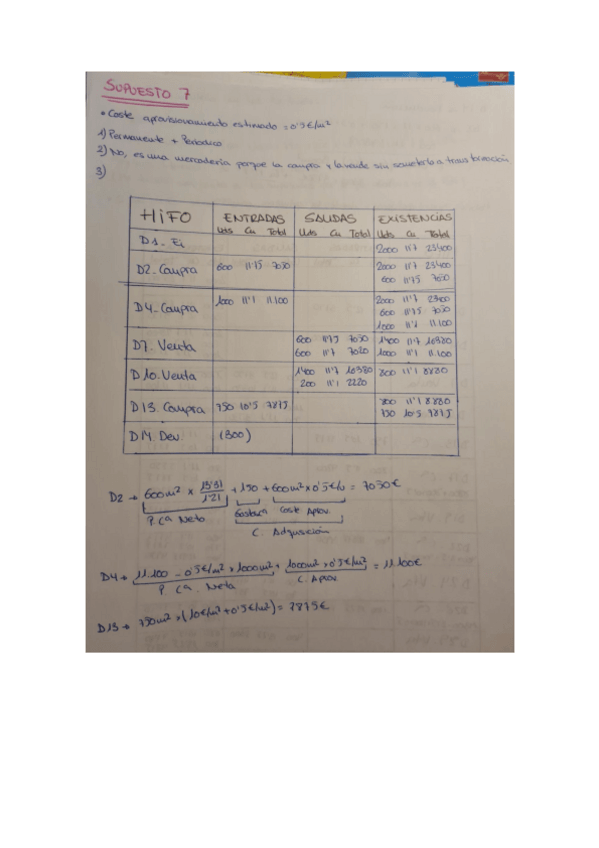 SUPUESTO 7
• Coste aprovisionamiento estimado = 0'5€/m²
1) Permanente + Periodico
2) No, es una mercadería porque la compra y la vende sin someterla a transformación
3)
HiFO ENTRADAS SALIDAS EXISTENCIAS
Uds Cu Total Uds Cu Total Uds Cu Total
D1. Ei 2000 11'7 23400
D2. Compra 600 11'75 7050 2000 11'7 23400
600 11'75 7050
D4. Compra 1000 11'1 11.100 2000 11'7 23400
600 11'75 7050
1000 11'1 11.100
D7. Venta 600 11'75 7050 1400 11'7 16380
600 11'7 7020 1000 11'1 11.100
D10. Venta 1400 11'7 16380 800 11'1 8880
200 11'1 2220
D13. Compra 750 10'5 7875 800 11'1 8.880
750 10'5 7875
D14. Dev. (300)
D2 → 600m² x 13'31/1'21 + 150 + 600m² x 0'5€/u = 7050€
P. Cª Neto Gastos Coste Aprov.
C. Adquisición
D4 → 11.100 - 0'5€/m² x 1000m² + 1000m² x 0'5€/m² = 11.100€
P. Cª. Neta C. Aprov
D13 → 750m² x (10€/m² + 0'5€/m²) = 7875€